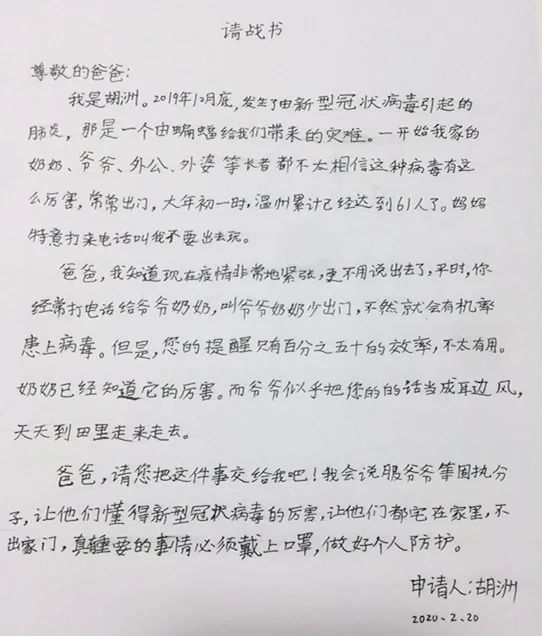 请战书
尊敬的爸爸：
我是胡洲。2019年12月底，发生了由新型冠状病毒引起的
肺炎，那是一个由蝙蝠给我们带来的灾难。一开始我家的
奶奶、爷爷、外公、外婆等长者都不太相信这种病毒有这
么厉害，常常出门，大年初一时，温州累计已经达到61人了。妈妈
特意打来电话叫我不要出去玩。
爸爸，我知道现在疫情非常地紧张，更不用说出去了，平时，你
经常打电话给爷爷奶奶，叫爷爷奶奶少出门，不然就会有机率
患上病毒。但是，您的提醒只有百分之五十的效率，不太有用。
奶奶已经知道它的厉害。而爷爷似乎把您的的话当成耳边风，
天天到田里走来走去。
爸爸，请您把这件事交给我吧！我会说服爷爷等固执分
子，让他们懂得新型冠状病毒的厉害，让他们都宅在家里，不
出家门，真重要的事情必须戴上口罩，做好个人防护。
申请人：胡洲
2020、2、20